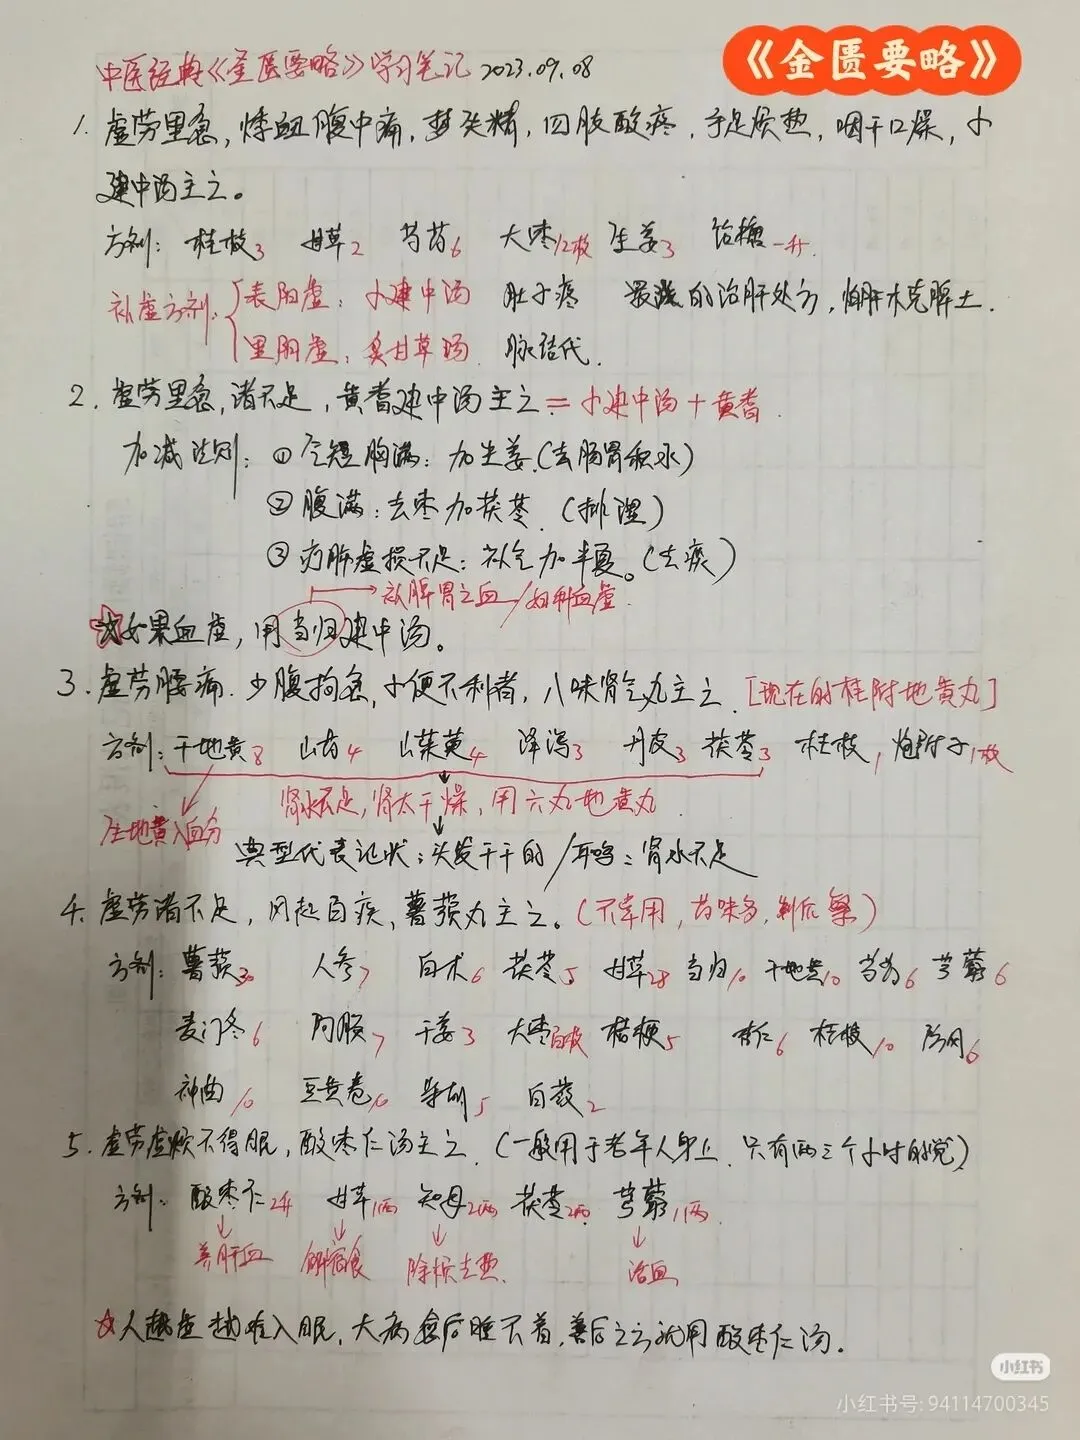 《金匮要略》
中医经典《金匮要略》学习笔记 2023.09.08
1. 虚劳里急,悸衄腹中痛,梦失精,四肢酸疼,手足烦热,咽干口燥,小
建中汤主之。
方剂: 桂枝3 甘草2 芍药6 大枣12枚 生姜3 饴糖一升
补虚方剂: 表阳虚: 小建中汤 肚子疼 最浅的治肝处方,怕肝木克脾土.
里阴虚: 炙甘草汤. 脉结代.
2. 虚劳里急,诸不足,黄耆建中汤主之 = 小建中汤+黄耆.
加减法则: ① 气短胸满: 加生姜.(去肠胃积水)
② 腹满: 去枣加茯苓.(排湿)
③ 疗肺虚损不足: 补气加半夏。(去痰)
→ 补脾胃之血/妇科血虚.
☆如果血虚,用当归建中汤。
3. 虚劳腰痛.少腹拘急,小便不利者,八味肾气丸主之.[现在的桂附地黄丸]
方剂: 干地黄8 山药4 山茱萸4 泽泻3 丹皮3 茯苓3 桂枝1 炮附子1枚
生地黄入血分
肾水不足,肾太干燥,用六丸地黄丸
典型代表证状: 头发干干的/耳鸣: 肾水不足
4. 虚劳诸不足,风起百疾,薯蓣丸主之。(不常用,药味多,制作繁)
方剂: 薯蓣30 人参7 白术6 茯苓5 甘草28 当归10 干地黄10 芍药6 芎藭6
麦门冬6 阿胶7 干姜3 大枣百枚 桔梗5 杏仁6 桂枝10 防风6
神曲10 豆黄卷10 柴胡5 白蔹2
5. 虚劳虚烦不得眠,酸枣仁汤主之.(一般用于老年人身上.只有两三个小时的觉)
方剂: 酸枣仁2升 甘草1两 知母2两 茯苓2两 芎藭1两
养肝血 解宿食 除烦去热. 活血
☆人越虚越难入眠,大病愈后睡不着,善后之方就用酸枣仁汤.
小红书
小红书号: 94114700345